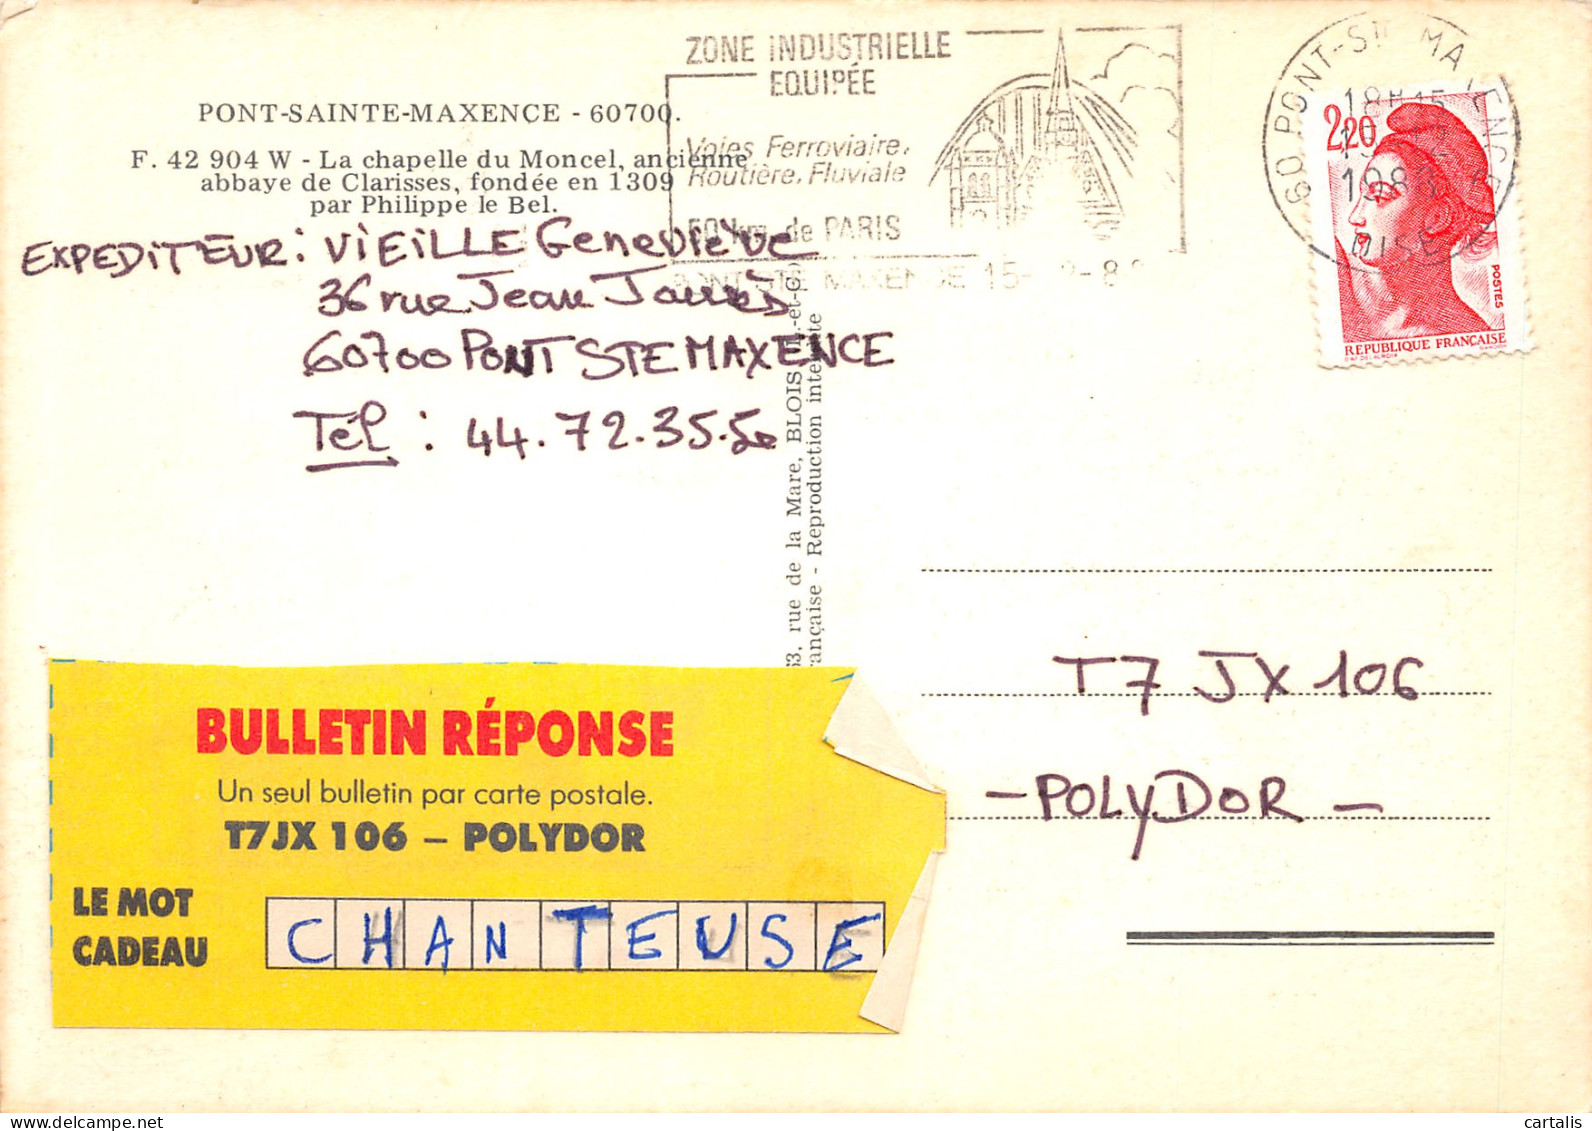 PONT-SAINTE-MAXENCE - 60700.
F. 42 904 W - La chapelle du Moncel, ancienne
abbaye de Clarisses, fondée en 1309
par Philippe le Bel.
ZONE INDUSTRIELLE
EQUIPÉE
Voies Ferroviaire,
Routière, Fluviale
km de PARIS
PONT STE MAXENCE 15-
60 PONT-STE MAXENCE
18H15
OISE
2,20
POSTES
REPUBLIQUE FRANÇAISE
EXPEDITEUR: VIEILLE Geneviève
36 rue Jean Jaurès
60700 PONT STE MAXENCE
Tél : 44.72.35.50
63, rue de la Mare, BLOIS
Reproduction
T7 JX 106
- POLYDOR -
BULLETIN RÉPONSE
Un seul bulletin par carte postale.
T7JX 106 – POLYDOR
LE MOT
CADEAU
CHANTEUSE
cartalis